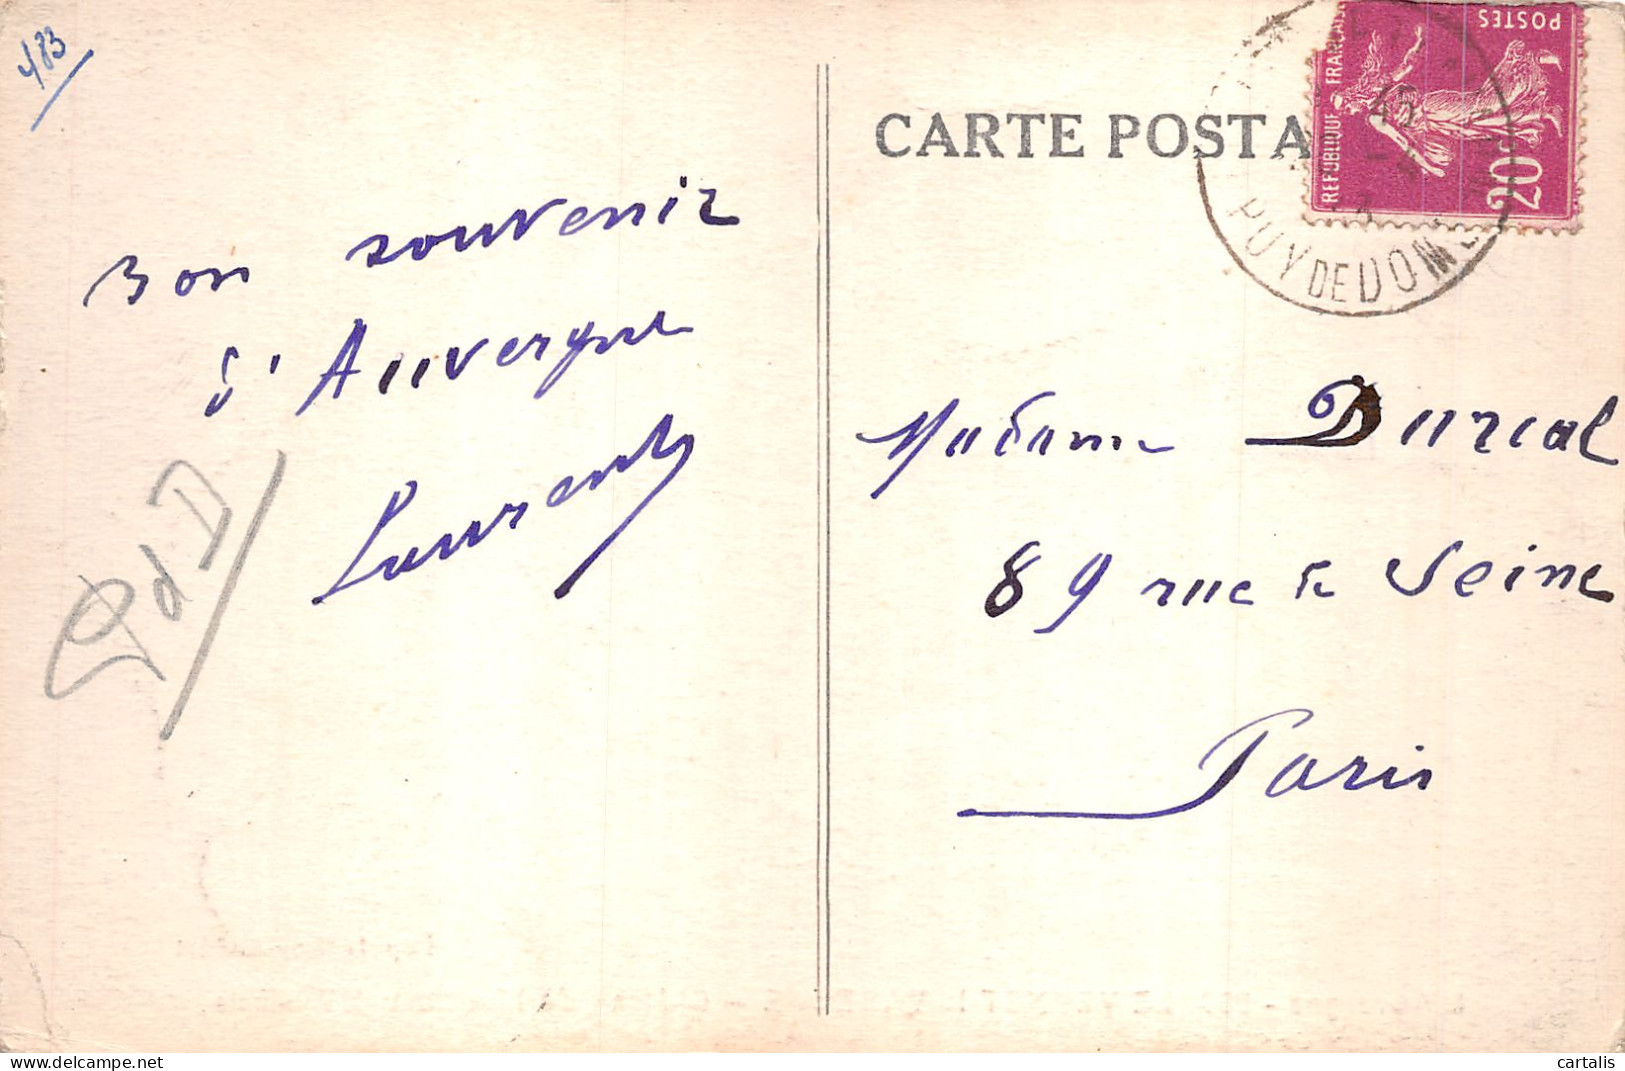 483
Bon souvenir
d'Auvergne
Laurent
PdD
CARTE POSTA
POSTES
REPUBLIQUE FRANÇAISE
20c
PUY DE DOME
Madame Durcal
89 rue de Seine
Paris
www.delcampe.net
cartalis